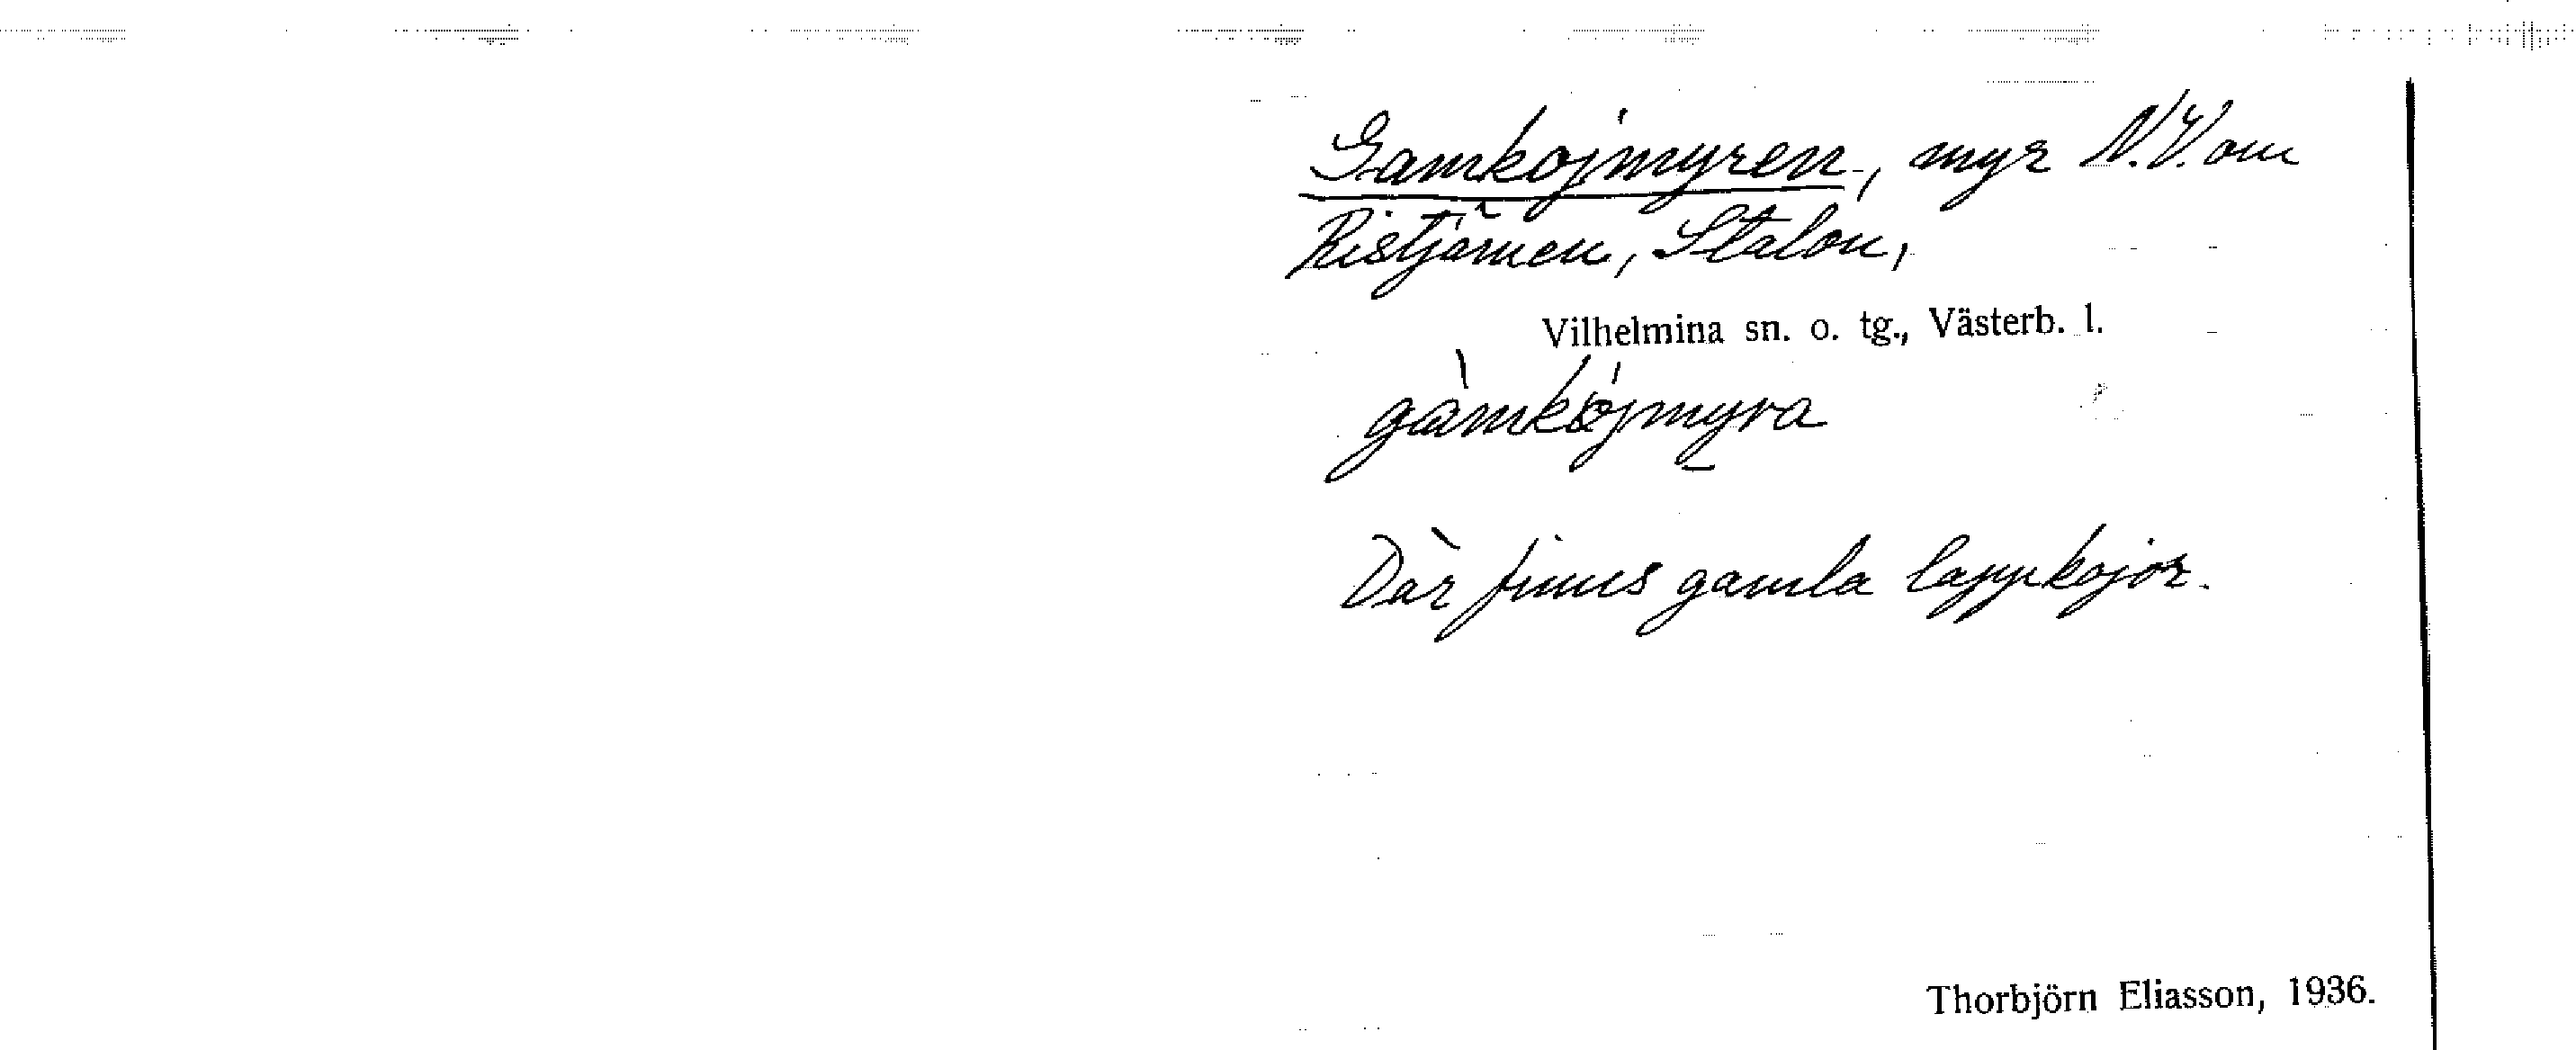 Gamkojmyren, myr N.V. om
Ristjärnen, Stalon,
Vilhelmina sn. o. tg., Västerb. l.
gàmkójmyra
Där finns gamla lappkojor.
Thorbjörn Eliasson, 1936.